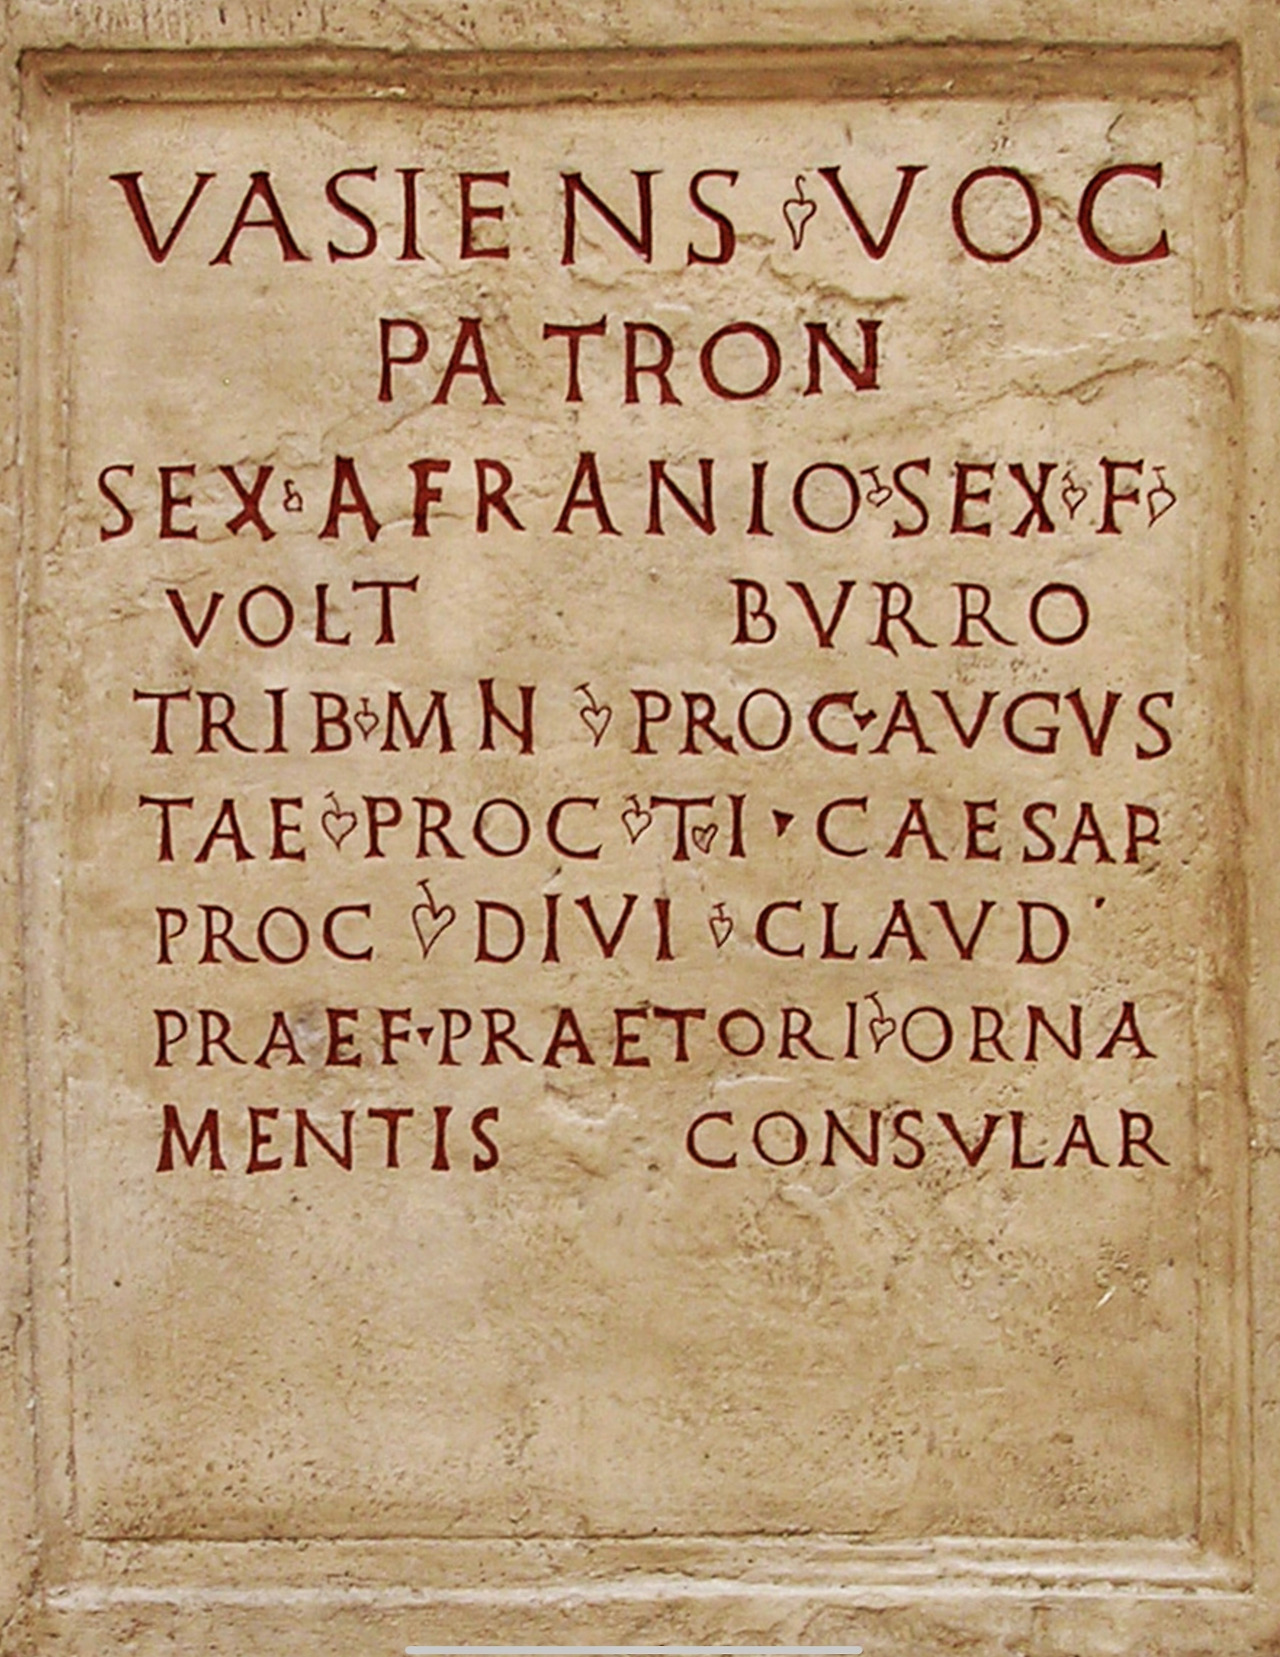 VASIENS ❦ VOC
PATRON
SEX ❦ AFRANIO ❦ SEX ❦ F ❦
VOLT BVRRO
TRIB ❦ MN ❦ PROC · AVGVS
TAE ❦ PROC ❦ TI · CAESAR
PROC ❦ DIVI ❦ CLAVD ·
PRAEF · PRAETORI ❦ ORNA
MENTIS CONSVLAR